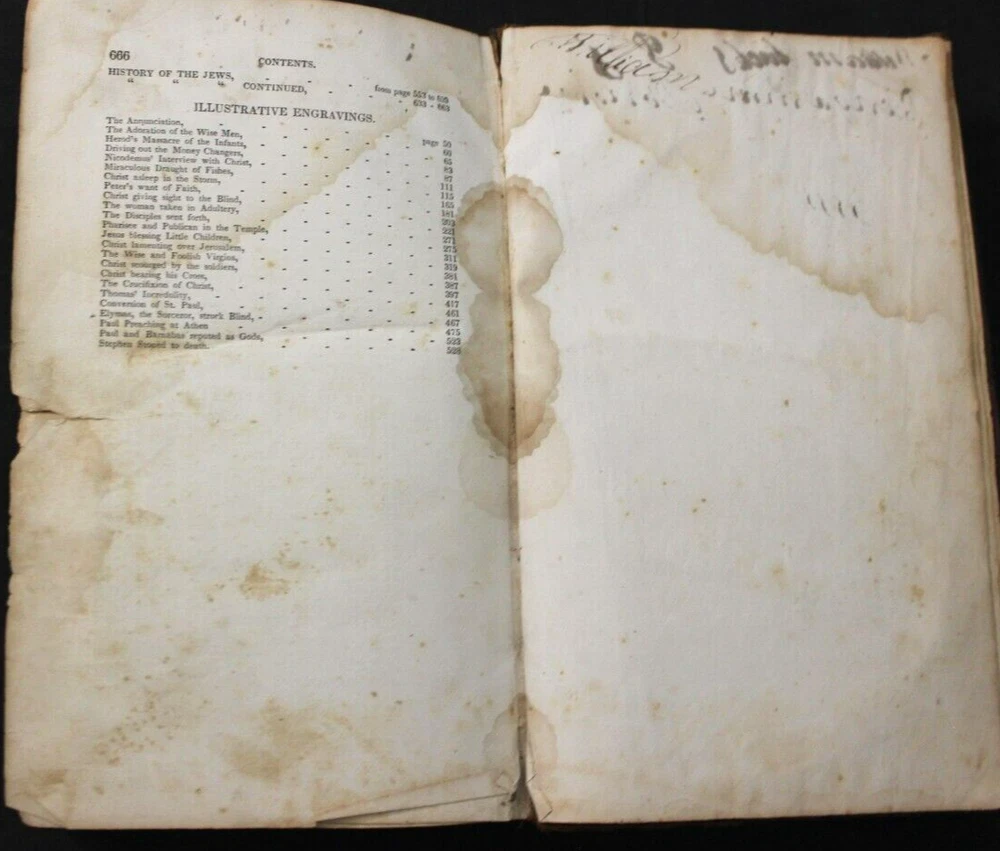 666
CONTENTS.
HISTORY OF THE JEWS, - - - from page 553 to
“ “ “ CONTINUED, - - - 633 - 663
ILLUSTRATIVE ENGRAVINGS.
The Annunciation, page 50
The Adoration of the Wise Men, 60
Herod's Massacre of the Infants, 65
Driving out the Money Changers, 83
Nicodemus' Interview with Christ, 87
Miraculous Draught of Fishes, 111
Christ asleep in the Storm, 115
Peter's want of Faith, 165
Christ giving sight to the Blind, 181
The woman taken in Adultery, 203
The Disciples sent forth, 221
Pharisee and Publican in the Temple, 271
Jesus blessing Little Children, 275
Christ lamenting over Jerusalem, 311
The Wise and Foolish Virgins, 319
Christ scourged by the soldiers, 381
Christ bearing his Cross, 387
The Crucifixion of Christ, 397
Thomas' Incredulity, 417
Conversion of St. Paul, 461
Elymas, the Sorcerer, struck Blind, 467
Paul Preaching at Athen 475
Paul and Barnabas reputed as Gods, 523
Stephen Stoned to death. 528